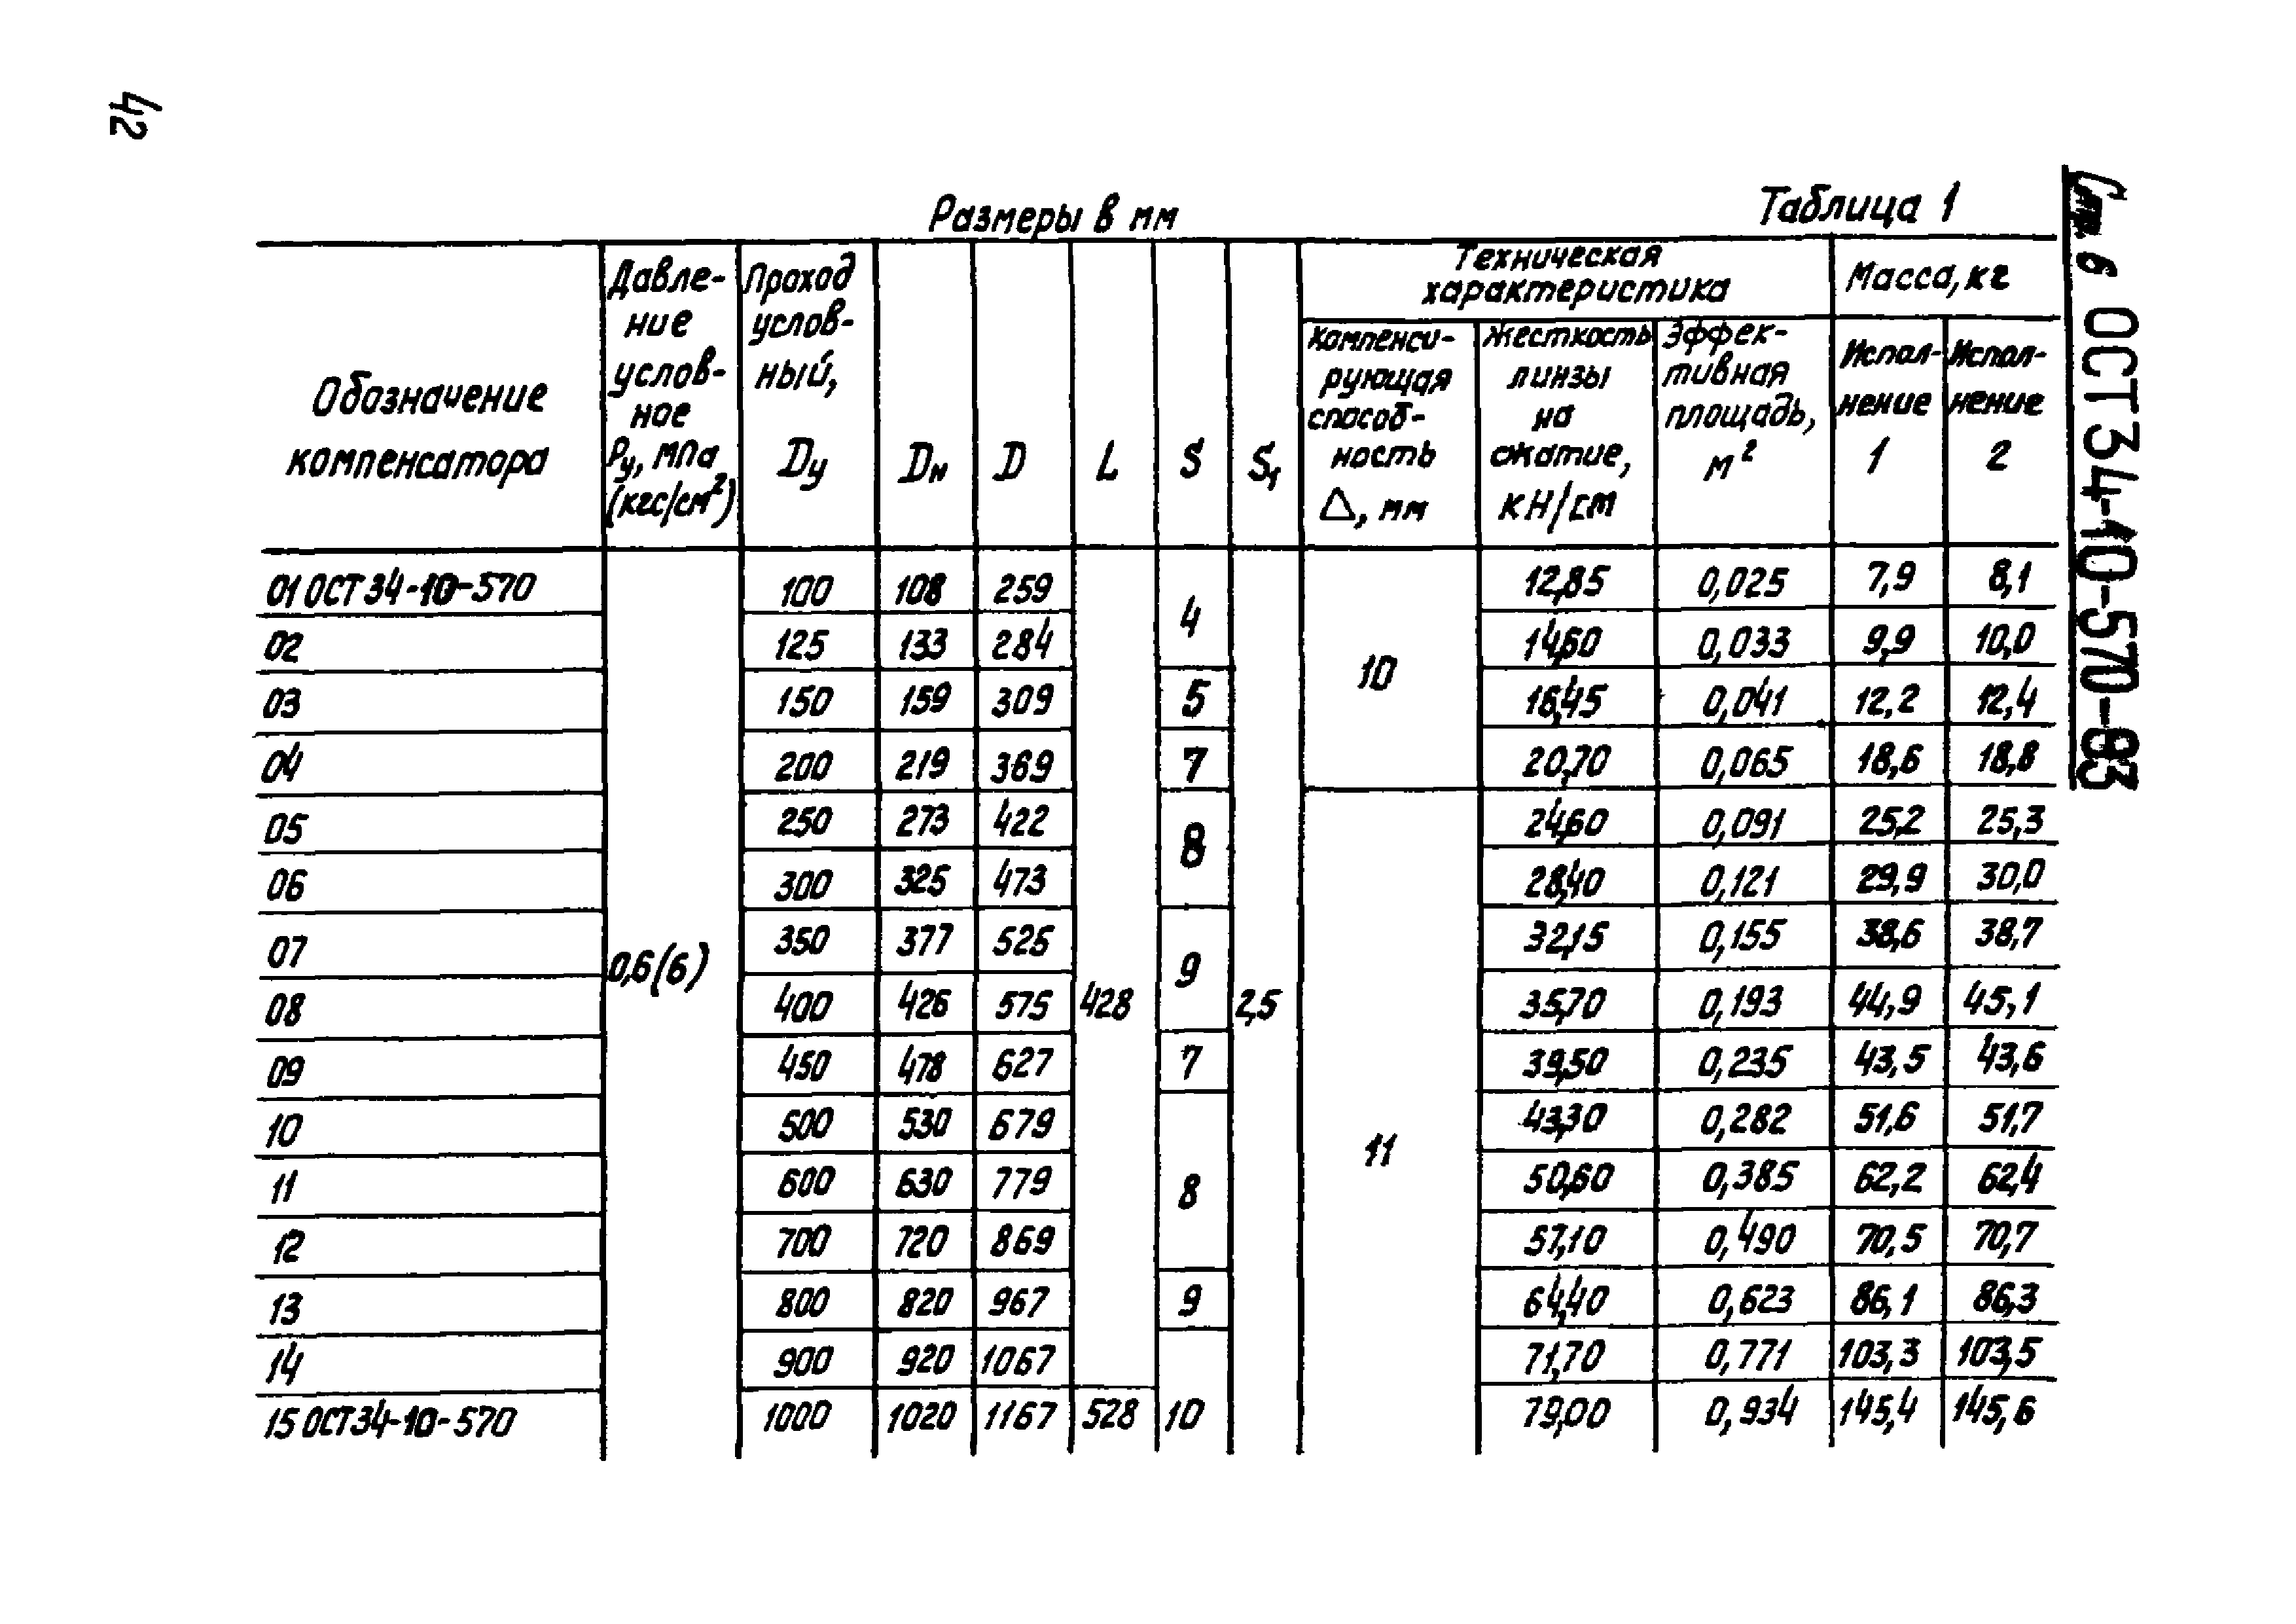 42
Размеры в мм
Таблица 1
Стр. 6 ОСТ 34-10-570-83
Обозначение компенсатора
Давление условное Pу, МПа (кгс/см²)
Проход условный, Dу
Dн
D
L
S
S₁
Техническая характеристика
Компенсирующая способность Δ, мм
Жесткость линзы на сжатие, кН/см
Эффективная площадь, м²
Масса, кг
Исполнение 1
Исполнение 2
01 ОСТ 34-10-570 0,6(6) 100 108 259 428 4 2,5 10 12,85 0,025 7,9 8,1
02 125 133 284 14,60 0,033 9,9 10,0
03 150 159 309 5 16,45 0,041 12,2 12,4
04 200 219 369 7 20,70 0,065 18,6 18,8
05 250 273 422 8 11 24,60 0,091 25,2 25,3
06 300 325 473 28,40 0,121 29,9 30,0
07 350 377 525 9 32,15 0,155 38,6 38,7
08 400 426 575 35,70 0,193 44,9 45,1
09 450 478 627 7 39,50 0,235 43,5 43,6
10 500 530 679 8 43,30 0,282 51,6 51,7
11 600 630 779 50,60 0,385 62,2 62,4
12 700 720 869 57,10 0,490 70,5 70,7
13 800 820 967 9 64,40 0,623 86,1 86,3
14 900 920 1067 10 71,70 0,771 103,3 103,5
15 ОСТ 34-10-570 1000 1020 1167 528 79,00 0,934 145,4 145,6